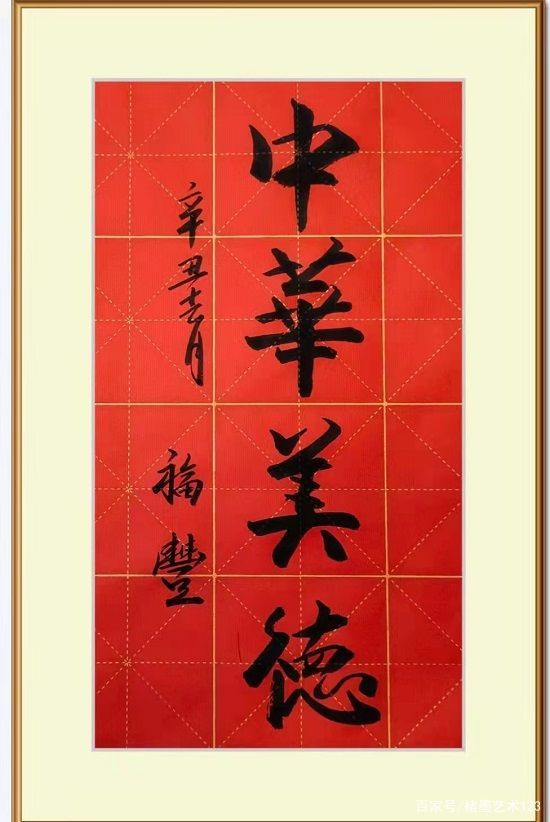 中華美德
辛丑月
福豐
百家号/楮墨艺术123